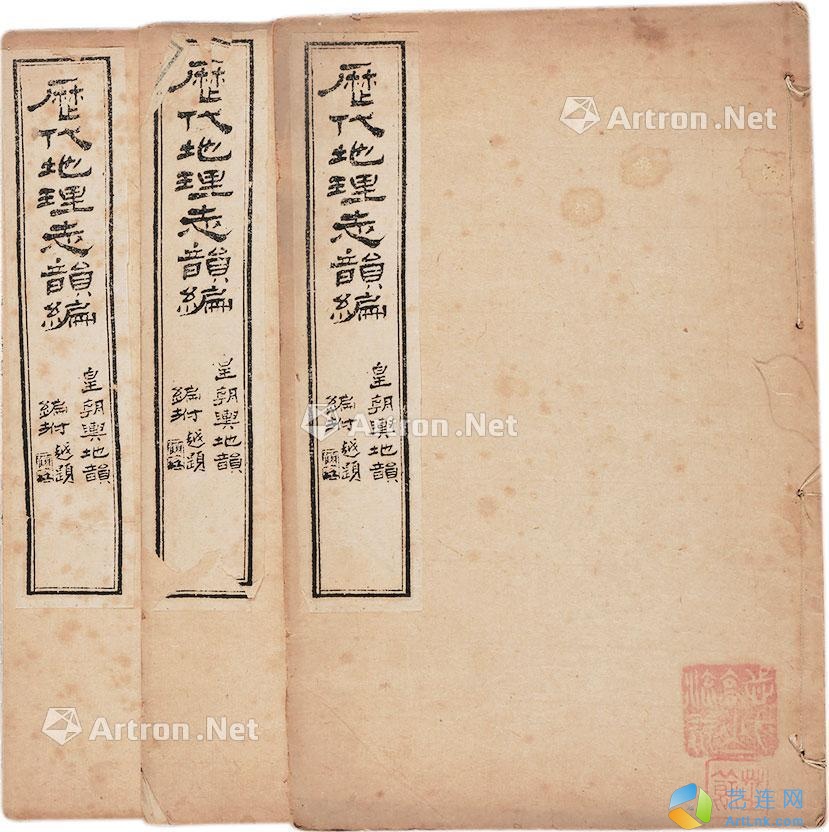 歷代地理志韻編
皇朝輿地韻
編坿 越題
歷代地理志韻編
皇朝輿地韻
編坿 越題
歷代地理志韻編
皇朝輿地韻
編坿 越題
Artron.Net
Artron.Net
Artron.Net
艺连网
ArtLnk.com